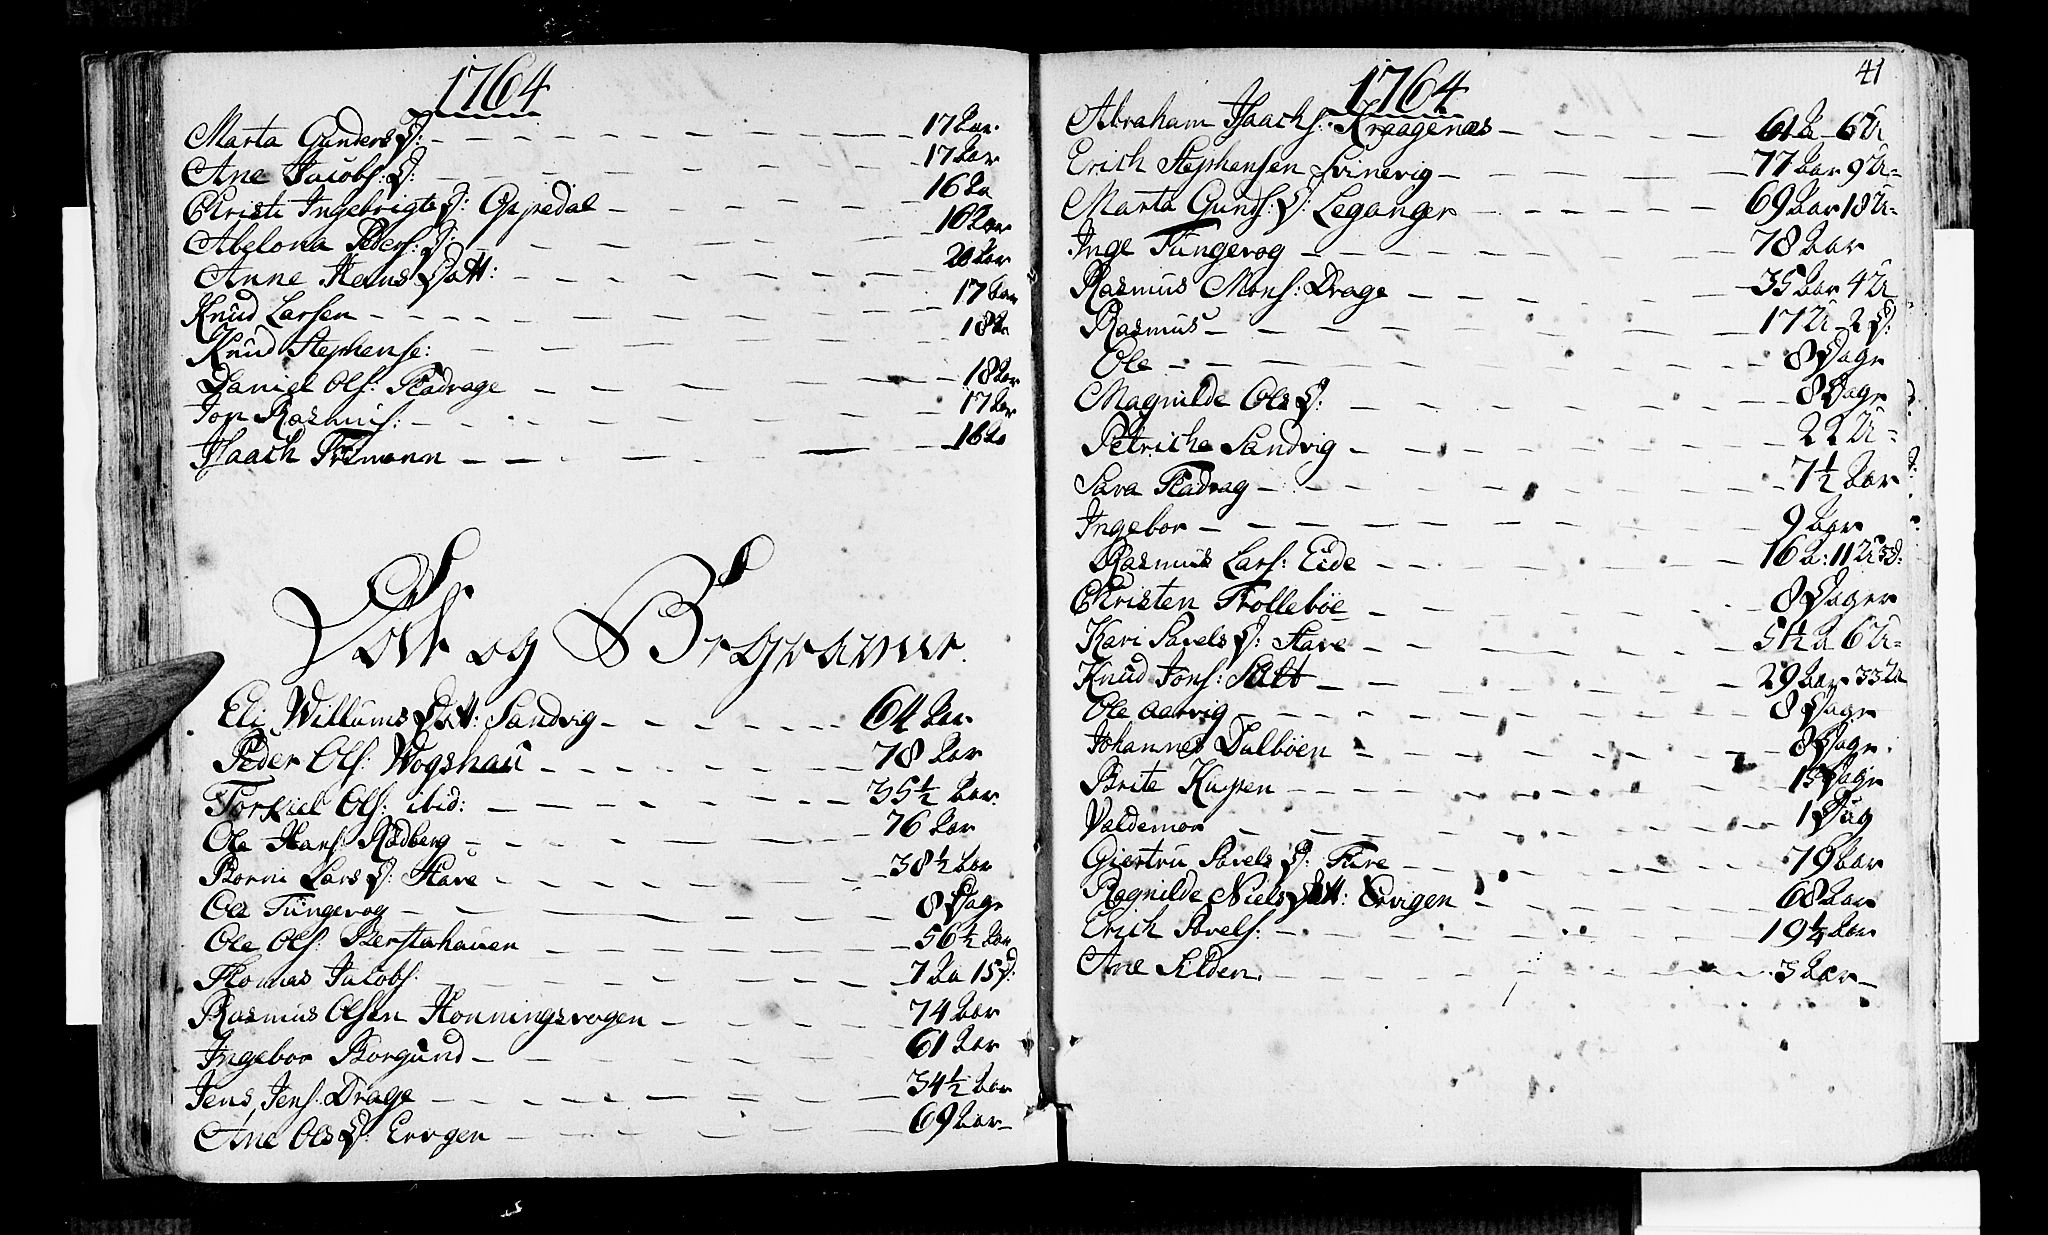 1764
Marta Gunders D: 17 Aar.
Ane Jacobs: D: 17 Aar
Christi Ingebrigts D: Oppedal 16 Aa
Abelona Peders: D: 16 Aar
Anne Hans Datt: 20 Aar
Knud Larsen 17 Aar
Knud Stephens: 18 Aa
Daniel Ols: Fladrage 18 Aar
Jon Rasmus: 17 Aar
Isaach Friimann 16 Aa
Døde og Begravne.
Eli Willums Datt: Sandvig 64 Aar
Peder Ols: Wogshau 78 Aar
Torkiel Ols: ibid: 35½ Aar
Ole Hans: Rødberg 76 Aar
Borni Lars D: Stave 38½ Aar
Ole Tungevog 8 Dage
Ole Ols: Berstahauen 56½ Aar
Thomas Jacobs: 7 Aa 15 D:
Rasmus Olsen Honningsvogen 74 Aar
Ingebor Borgund 61 Aar
Jens Jens: Drage 34½ Aar
Ane Ols D: Ervigen 69 Aar
41
1764
Abraham Isaachs: Kraagenæs 61 A 6 U
Erich Stephensen Svinevig 77 Aar 9 U
Marta Gunds: D: Leganger 69 Aar 18 U
Inge Tungevog 78 Aar
Rasmus Mons: Drage 35 Aar 4 U
Rasmus 17 U 2 D:
Ole 8 Dage
Magnilde Ols D: 8 Dage
Petriche Sandvig 22 U
Sara Fladrag 7½ Aar
Ingebor 9 Aar
Rasmus Lars: Eide 16 A: 11 U 3 D:
Christen Trolleböe 8 Dager
Kari Povels D: Stave 5½ A 6 U
Knud Jons: Salt 29 Aar 33 U
Ole Aarvig 8 Dage
Johannes Dalböen 8 Dage
Brite Kupen 15 Dage
Valdemor 1 Dag
Giertru Povels D: Ture 79 Aar
Ragnilde Niels Datt: Ervigen 68 Aar
Erich Povels: 19¼ Aar
Ane Silden 3 Aar